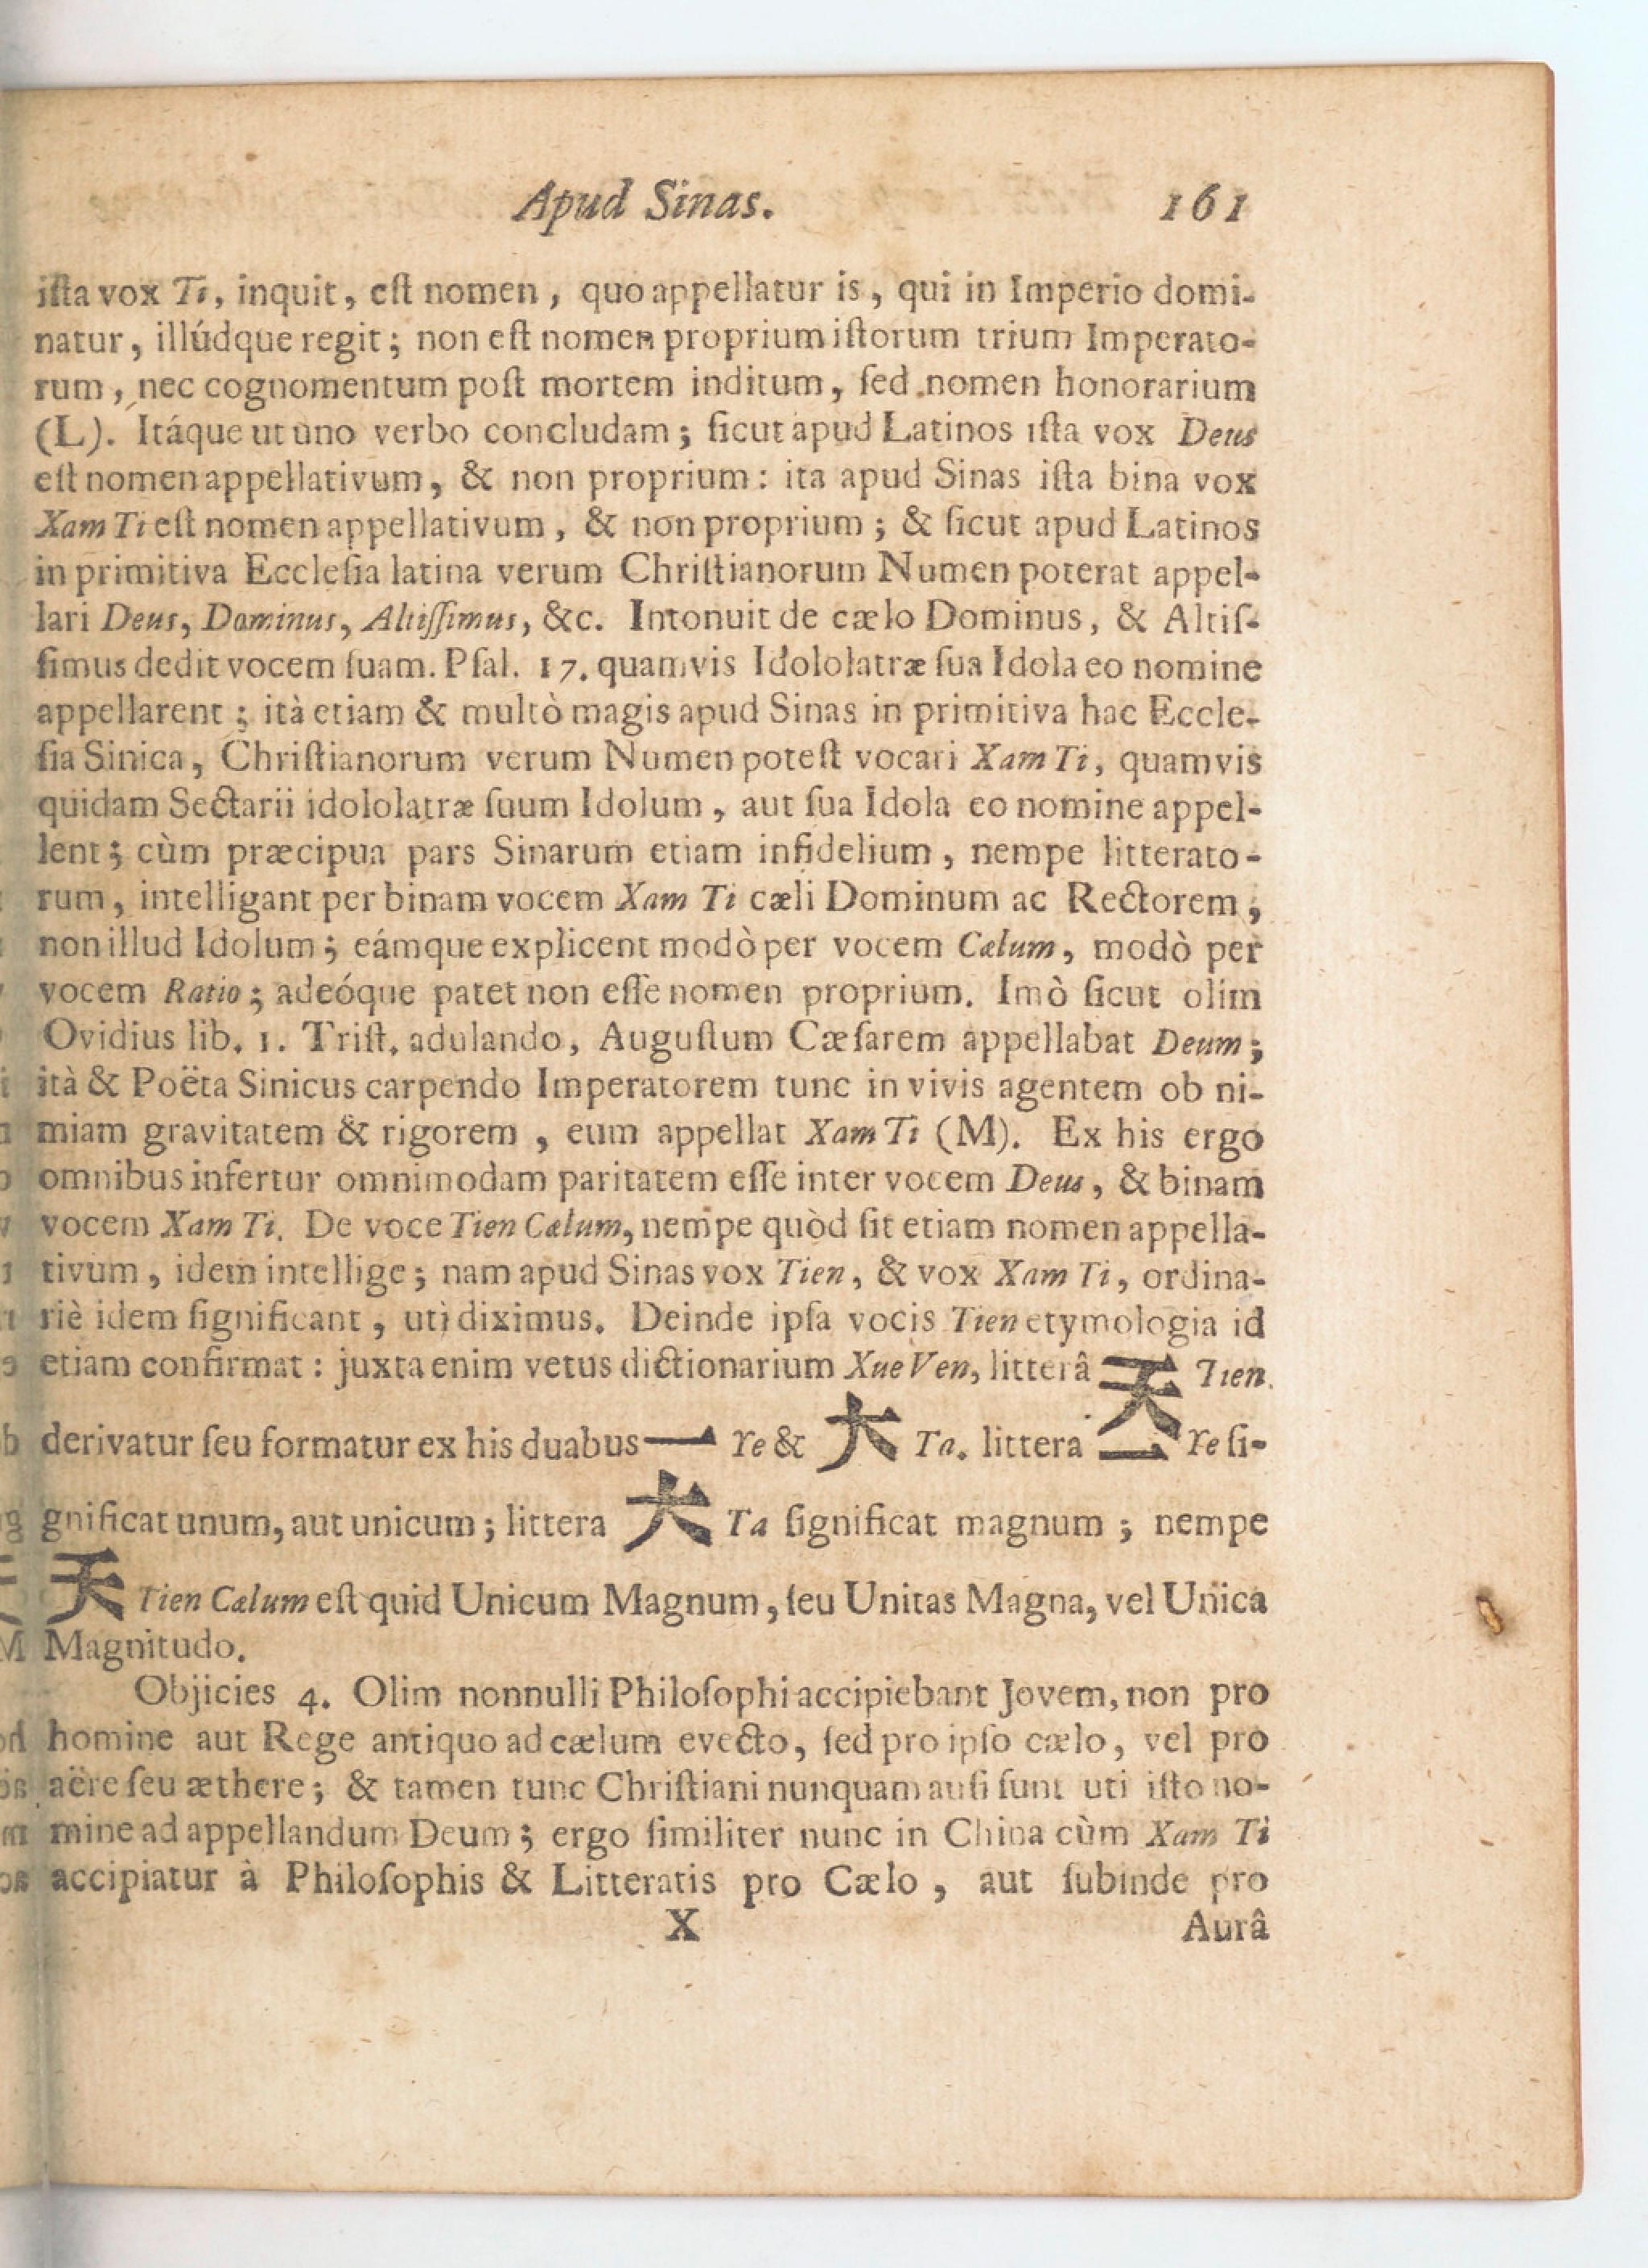 Apud Sinas. 161
iſta vox Ti, inquit, eſt nomen, quo appellatur is, qui in Imperio domi-
natur, illúdque regit; non eſt nomen proprium iſtorum trium Imperato-
rum, nec cognomentum poſt mortem inditum, ſed nomen honorarium
(L). Itáque ut uno verbo concludam; ſicut apud Latinos iſta vox Deus
eſt nomen appellativum, & non proprium: ita apud Sinas iſta bina vox
Xam Ti eſt nomen appellativum, & non proprium; & ſicut apud Latinos
in primitiva Eccleſia latina verum Chriſtianorum Numen poterat appel-
lari Deus, Dominus, Altiſſimus, &c. Intonuit de cælo Dominus, & Altiſ-
ſimus dedit vocem ſuam. Pſal. 17. quamvis Idololatræ ſua Idola eo nomine
appellarent; ità etiam & multò magis apud Sinas in primitiva hac Eccle-
ſia Sinica, Chriſtianorum verum Numen poteſt vocari Xam Ti, quamvis
quidam Sectarii idololatræ ſuum Idolum, aut ſua Idola eo nomine appel-
lent; cùm præcipua pars Sinarum etiam infidelium, nempe litterato-
rum, intelligant per binam vocem Xam Ti cæli Dominum ac Rectorem,
non illud Idolum; eámque explicent modò per vocem Cælum, modò per
vocem Ratio; adeóque patet non eſſe nomen proprium. Imò ſicut olim
Ovidius lib. 1. Triſt. adulando, Auguſtum Cæſarem appellabat Deum;
ità & Poëta Sinicus carpendo Imperatorem tunc in vivis agentem ob ni-
miam gravitatem & rigorem, eum appellat Xam Ti (M). Ex his ergo
omnibus infertur omnimodam paritatem eſſe inter vocem Deus, & binam
vocem Xam Ti. De voce Tien Cælum, nempe quòd ſit etiam nomen appella-
tivum, idem intellige; nam apud Sinas vox Tien, & vox Xam Ti, ordina-
riè idem ſignificant, uti diximus. Deinde ipſa vocis Tien etymologia id
etiam confirmat: juxta enim vetus dictionarium Xue Ven, litterâ 天 Tien.
derivatur ſeu formatur ex his duabus 一 Ye & 大 Ta. littera 一 Ye ſi-
gnificat unum, aut unicum; littera 大 Ta ſignificat magnum; nempe
天 Tien Cælum eſt quid Unicum Magnum, ſeu Unitas Magna, vel Unica
Magnitudo.
Objicies 4. Olim nonnulli Philoſophi accipiebant Jovem, non pro
homine aut Rege antiquo ad cælum evecto, ſed pro ipſo cælo, vel pro
aëre ſeu æthere; & tamen tunc Chriſtiani nunquam auſi ſunt uti iſto no-
mine ad appellandum Deum; ergo ſimiliter nunc in China cùm Xam Ti
accipiatur à Philoſophis & Litteratis pro Cælo, aut ſubinde pro
X Aurâ